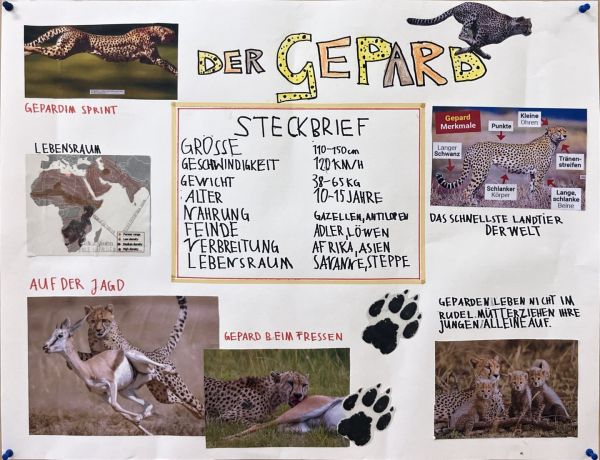 DER GEPARD
GEPARD IM SPRINT
LEBENSRAUM
STECKBRIEF
GRÖSSE 110-150cm
GESCHWINDIGKEIT 120KM/H
GEWICHT 38-65KG
ALTER 10-15 JAHRE
NAHRUNG GAZELLEN, ANTILOPEN
FEINDE ADLER, LÖWEN
VERBREITUNG AFRIKA, ASIEN
LEBENSRAUM SAVANNE, STEPPE
Gepard
Merkmale
Kleine
Ohren
Punkte
Langer
Schwanz
Tränen-
streifen
Schlanker
Körper
Lange,
schlanke
Beine
DAS SCHNELLSTE LANDTIER
DER WELT
AUF DER JAGD
GEPARD BEIM FRESSEN
GEPARDEN LEBEN NICHT IM
RUDEL. MÜTTER ZIEHEN IHRE
JUNGEN ALLEINE AUF.